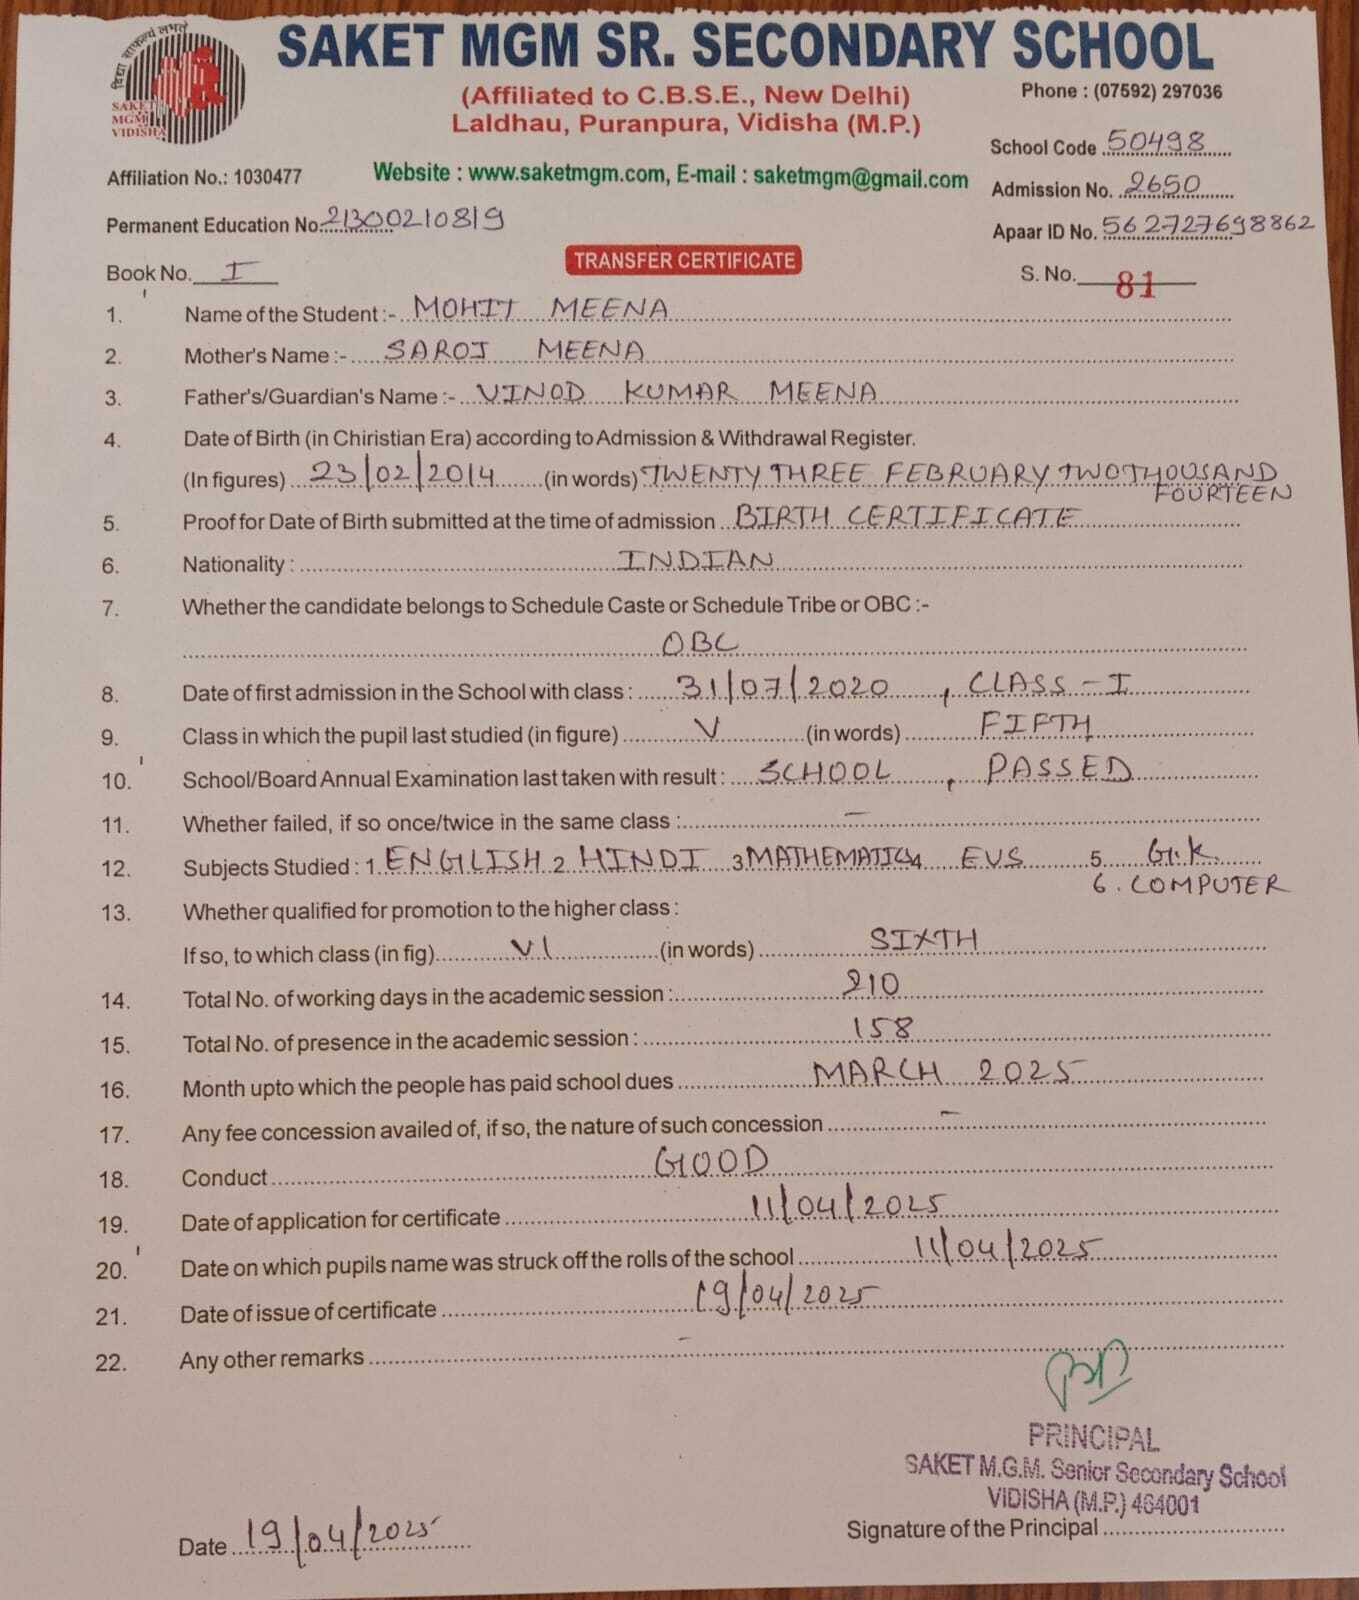 विद्या साफल्यं लभते
SAKET
MGM
VIDISHA
SAKET MGM SR. SECONDARY SCHOOL
(Affiliated to C.B.S.E., New Delhi)
Phone : (07592) 297036
Laldhau, Puranpura, Vidisha (M.P.)
School Code 50498
Affiliation No.: 1030477
Website : www.saketmgm.com, E-mail : saketmgm@gmail.com
Admission No. 2650
Permanent Education No. 21300210819
Apaar ID No. 562727698862
Book No. I
TRANSFER CERTIFICATE
S. No. 81
1. Name of the Student :- MOHIT MEENA
2. Mother's Name :- SAROJ MEENA
3. Father's/Guardian's Name :- VINOD KUMAR MEENA
4. Date of Birth (in Chiristian Era) according to Admission & Withdrawal Register.
(In figures) 23/02/2014 (in words) TWENTY THREE FEBRUARY TWO THOUSAND
FOURTEEN
5. Proof for Date of Birth submitted at the time of admission BIRTH CERTIFICATE
6. Nationality : INDIAN
7. Whether the candidate belongs to Schedule Caste or Schedule Tribe or OBC :-
OBC
8. Date of first admission in the School with class : 31/07/2020, CLASS - I
9. Class in which the pupil last studied (in figure) V (in words) FIFTH
10. School/Board Annual Examination last taken with result : SCHOOL, PASSED
11. Whether failed, if so once/twice in the same class : -
12. Subjects Studied : 1. ENGLISH 2 HINDI 3 MATHEMATICS 4 EVS 5. G.K.
6. COMPUTER
13. Whether qualified for promotion to the higher class :
If so, to which class (in fig) VI (in words) SIXTH
14. Total No. of working days in the academic session : 210
15. Total No. of presence in the academic session : 158
16. Month upto which the people has paid school dues MARCH 2025
17. Any fee concession availed of, if so, the nature of such concession -
18. Conduct GOOD
19. Date of application for certificate 11/04/2025
20. Date on which pupils name was struck off the rolls of the school 11/04/2025
21. Date of issue of certificate 19/04/2025
22. Any other remarks -
PRINCIPAL
SAKET M.G.M. Senior Secondary School
VIDISHA (M.P.) 464001
Signature of the Principal
Date 19/04/2025